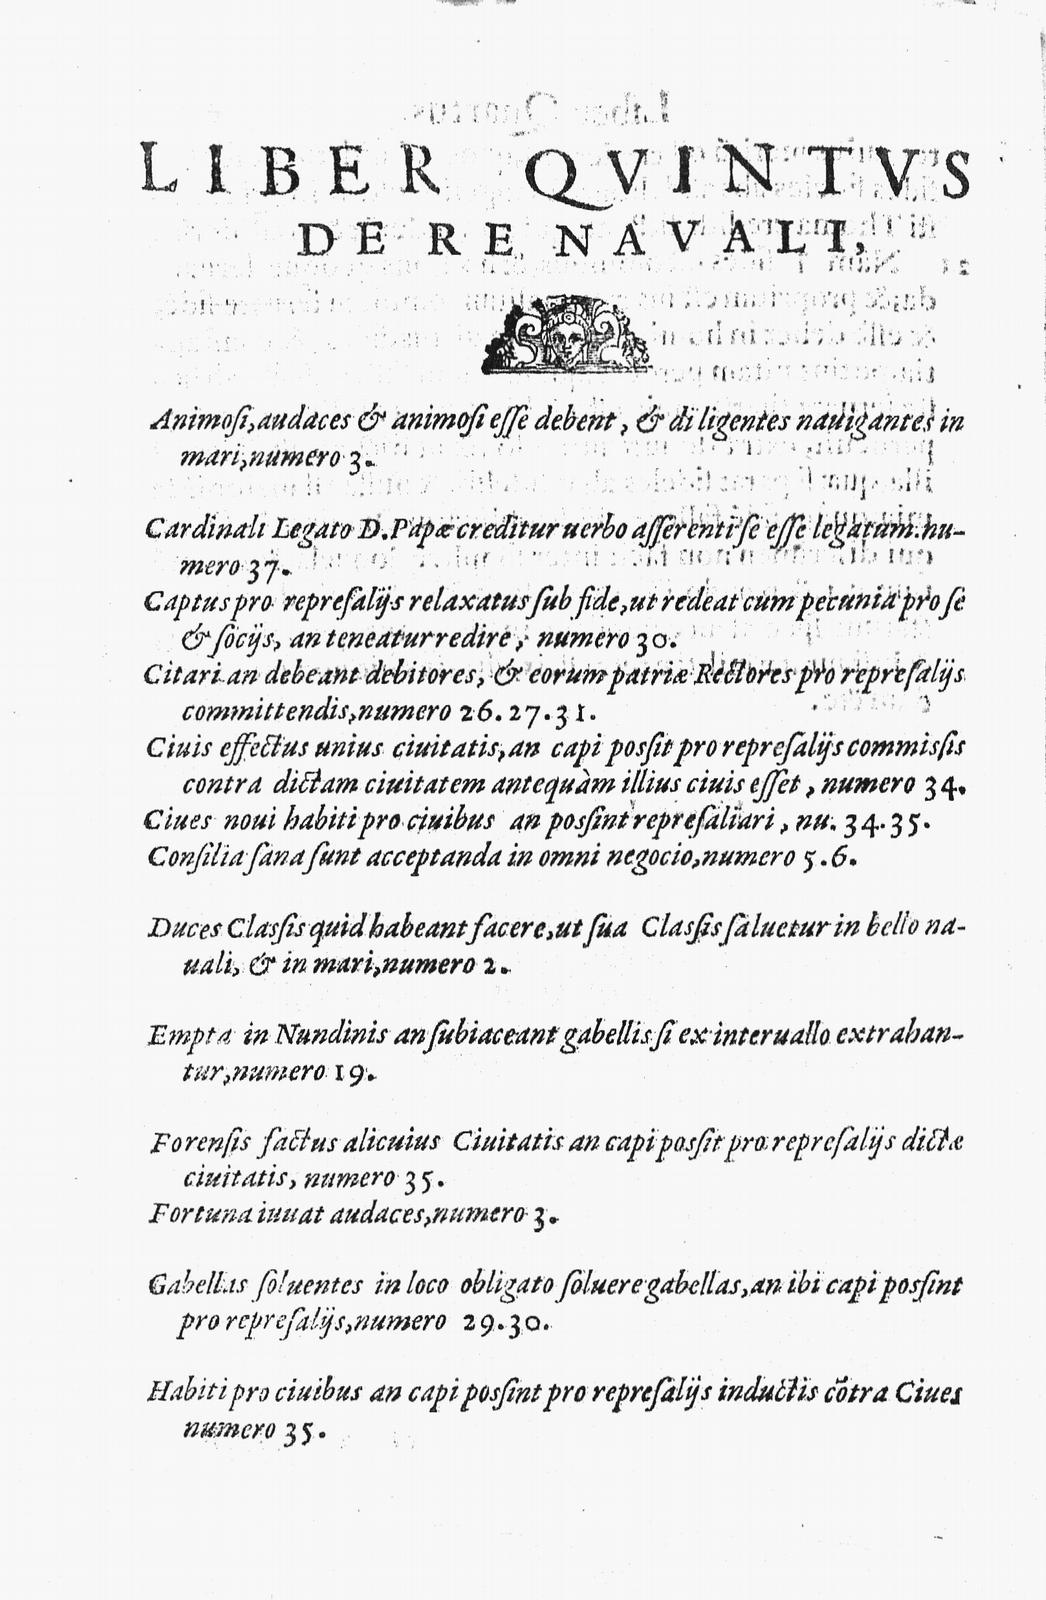 LIBER QVINTVS
DE RE NAVALI,
Animoſi,audaces & animoſi eſſe debent, & diligentes nauigantes in
mari,numero 3.
Cardinali Legato D.Papæ creditur uerbo aſſerenti ſe eſſe legatum.nu-
mero 37.
Captus pro repreſalijs relaxatus ſub fide,ut redeat cum pecunia pro ſe
& ſocijs, an teneatur redire, numero 30.
Citari an debeant debitores, & eorum patriæ Rectores pro repreſalijs
committendis,numero 26.27.31.
Ciuis effectus unius ciuitatis,an capi poſſit pro repreſalijs commiſſis
contra dictam ciuitatem antequàm illius ciuis eſſet, numero 34.
Ciues noui habiti pro ciuibus an poſſint repreſaliari, nu. 34.35.
Conſilia ſana ſunt acceptanda in omni negocio,numero 5.6.
Duces Claſſis quid habeant facere,ut ſua Claſſis ſaluetur in bello na-
uali, & in mari,numero 2.
Empta in Nundinis an ſubiaceant gabellis ſi ex interuallo extrahan-
tur,numero 19.
Forenſis factus alicuius Ciuitatis an capi poſſit pro repreſalijs dictæ
ciuitatis, numero 35.
Fortuna iuuat audaces,numero 3.
Gabellas ſoluentes in loco obligato ſoluere gabellas,an ibi capi poſſint
pro repreſalijs,numero 29.30.
Habiti pro ciuibus an capi poſſint pro repreſalijs inductis cõtra Ciues
numero 35.